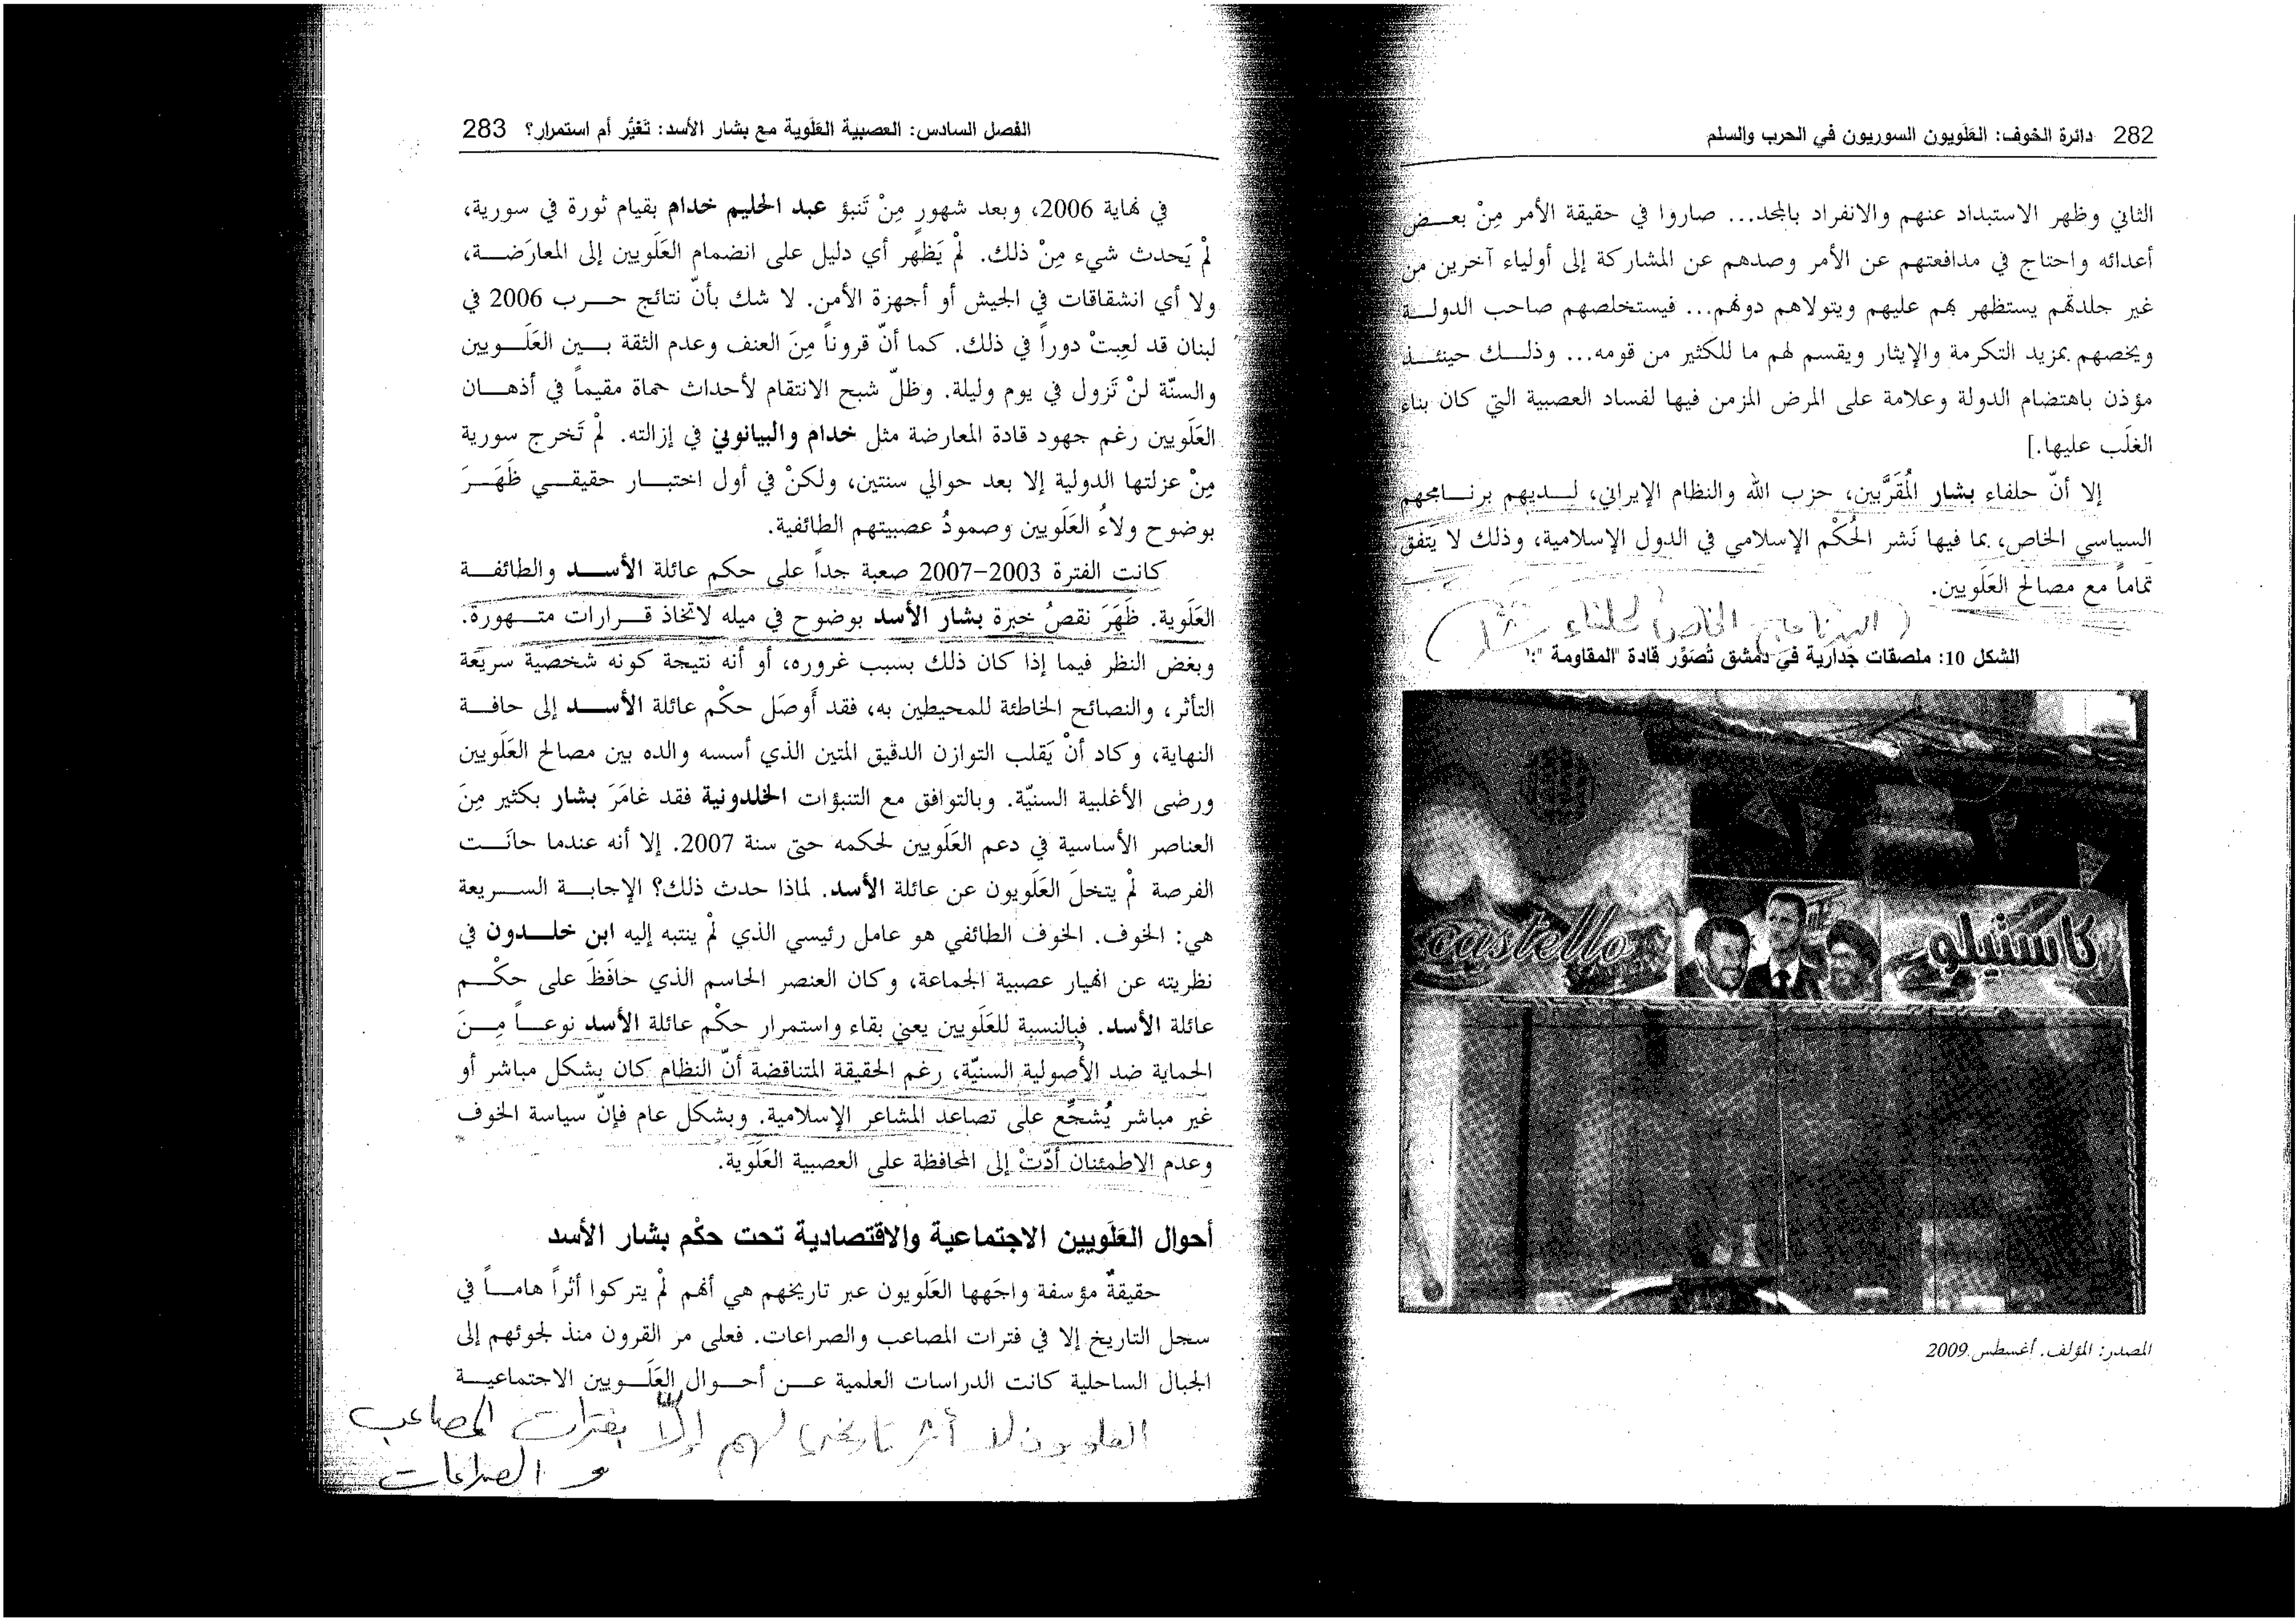 282 دائرة الخوف: العَلَويون السوريون في الحرب والسلم
الثاني وظهر الاستبداد عنهم والانفراد بالمجد... صاروا في حقيقة الأمر مِنْ بعـــض
أعدائه واحتاج في مدافعتهم عن الأمر وصدهم عن المشاركة إلى أولياء آخرين من
غير جلدتهم يستظهر بهم عليهم ويتولاهم دونهم... فيستخلصهم صاحب الدولـــة
ويخصهم بمزيد التكرمة والإيثار ويقسم لهم ما للكثير من قومه... وذلـــك حينئـــذ
مؤذن باهتضام الدولة وعلامة على المرض المزمن فيها لفساد العصبية التي كان بناء
الغلَب عليها.]
إلا أنّ حلفاء بشار المُقَرَّبين، حزب الله والنظام الإيراني، لـــديهم برنـــامجهم
السياسي الخاص، بما فيها نَشر الحُكْم الإسلامي في الدول الإسلامية، وذلك لا يَتفق
تماماً مع مصالح العَلَويين.
(البرنامج الخاص لحلفاء
الشكل 10: ملصقات جِدارية في دمشق تُصَوِّر قادة "المقاومة":
castello
كاستيلو
المصدر: المؤلف. أغسطس 2009
الفصل السادس: العصبية العَلَوية مع بشار الأسد: تَغيُّر أم استمرار؟ 283
في نهاية 2006، وبعد شهورٍ مِنْ تَنبؤ عبد الحليم خدام بقيام ثورة في سورية،
لمْ يَحدث شيء مِنْ ذلك. لمْ يَظهر أي دليل على انضمام العَلَويين إلى المعارَضـــة،
ولا أي انشقاقات في الجيش أو أجهزة الأمن. لا شك بأنّ نتائج حـــرب 2006 في
لبنان قد لعِبتْ دوراً في ذلك. كما أنّ قروناً مِنَ العنف وعدم الثقة بـــين العَلَـــويين
والسنّة لنْ تَزول في يوم وليلة. وظلّ شبح الانتقام لأحداث حماة مقيماً في أذهـــان
العَلَويين رغم جهود قادة المعارضة مثل خدام والبيانوني في إزالته. لمْ تَخرج سورية
مِنْ عزلتها الدولية إلا بعد حوالي سنتين، ولكنْ في أول اختبـــار حقيقـــي ظَهَـــرَ
بوضوح ولاءُ العَلَويين وصمودُ عصبيتهم الطائفية.
كانت الفترة 2003-2007 صعبة جداً على حكم عائلة الأســـد والطائفـــة
العَلَوية. ظَهَرَ نقصُ خبرة بشار الأسد بوضوح في ميله لاتخاذ قـــرارات متـــهورة.
وبغض النظر فيما إذا كان ذلك بسبب غروره، أو أنه نتيجة كونه شخصية سريعَة
التأثر، والنصائح الخاطئة للمحيطين به، فقد أَوصَل حكْم عائلة الأســـد إلى حافـــة
النهاية، وكاد أنْ يَقلب التوازن الدقيق المتين الذي أسسه والده بين مصالح العَلَويين
ورضى الأغلبية السنيّة. وبالتوافق مع التنبؤات الخلدونية فقد غامَرَ بشار بكثير مِنَ
العناصر الأساسية في دعم العَلَويين لحكمه حتى سنة 2007. إلا أنه عندما حانَـــت
الفرصة لمْ يتخلَ العَلَويون عن عائلة الأسد. لماذا حدث ذلك؟ الإجابـــة الســـريعة
هي: الخوف. الخوف الطائفي هو عامل رئيسي الذي لمْ ينتبه إليه ابن خلـــدون في
نظريته عن انهيار عصبية الجماعة، وكان العنصر الحاسم الذي حافَظَ على حكْـــم
عائلة الأسد. فبالنسبة للعَلَويين يعني بقاء واستمرار حكْم عائلة الأسد نوعـــاً مِـــنَ
الحماية ضد الأصولية السنيّة، رغم الحقيقة المتناقضة أنّ النظام كان بشكل مباشر أو
غير مباشر يُشجِّع على تصاعد المشاعر الإسلامية. وبشكل عام فإنّ سياسة الخوف
وعدم الاطمئنان أدّتْ إلى المحافظة على العصبية العَلَوية.
أحوال العَلَويين الاجتماعية والاقتصادية تحت حكْم بشار الأسد
حقيقةٌ مؤسفة واجَهها العَلَويون عبر تاريخهم هي أنهم لمْ يتركوا أثراً هامـــاً في
سجل التاريخ إلا في فترات المصاعب والصراعات. فعلى مر القرون منذ لجوئهم إلى
الجبال الساحلية كانت الدراسات العلمية عـــن أحـــوال العَلَـــويين الاجتماعيـــة
العلويون لا أثر تاريخي لهم إلّا بفترات المصاعب
و الصراعات